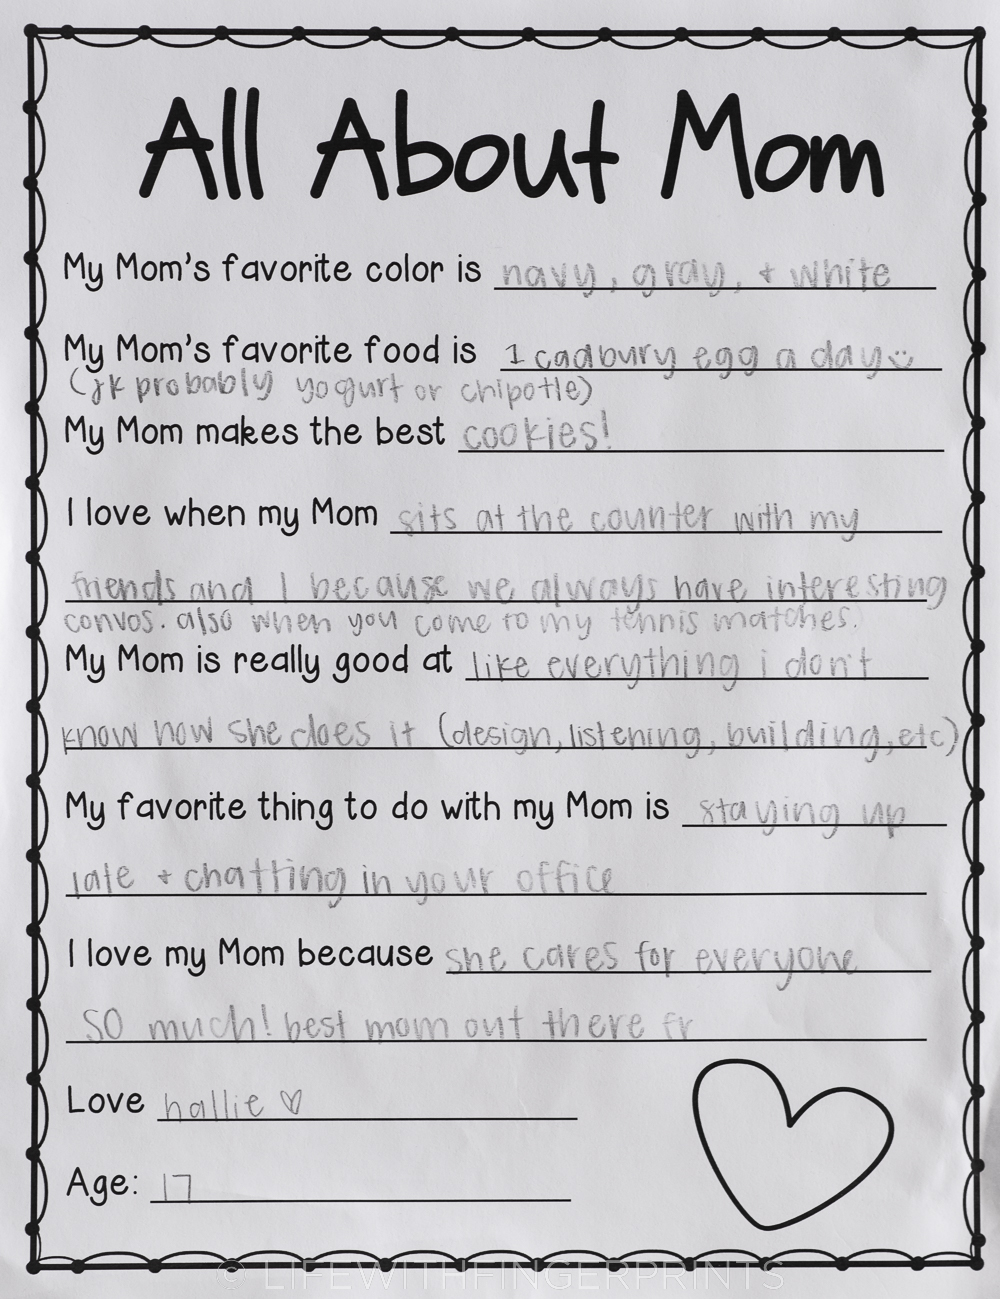 All About Mom
My Mom's favorite color is navy, gray, + white
My Mom's favorite food is 1 cadbury egg a day☺
(jk probably yogurt or chipotle)
My Mom makes the best cookies!
I love when my Mom sits at the counter with my
friends and I because we always have interesting
convos. also when you come to my tennis matches.
My Mom is really good at like everything i don't
know how she does it (design, listening, building, etc)
My favorite thing to do with my Mom is staying up
late + chatting in your office
I love my Mom because she cares for everyone
SO much! best mom out there fr
Love hallie ♡
Age: 17
© LIFEWITHFINGERPRINTS